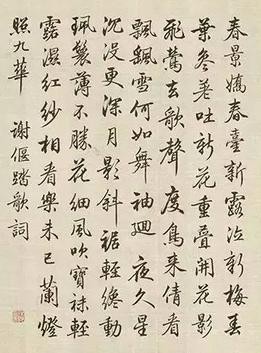 春景嬌春臺新露泣新梅春
葉參差吐新花重疊開花影
飛鶯去歌聲度鳥來倩看
飄颻雪何如舞袖迴 夜久星
沉没更深月影斜裾輕纔動
珮鬟薄不勝花細風吹寶袜輕
露濕紅紗相看樂未已蘭燈
照九華 謝偃踏歌詞